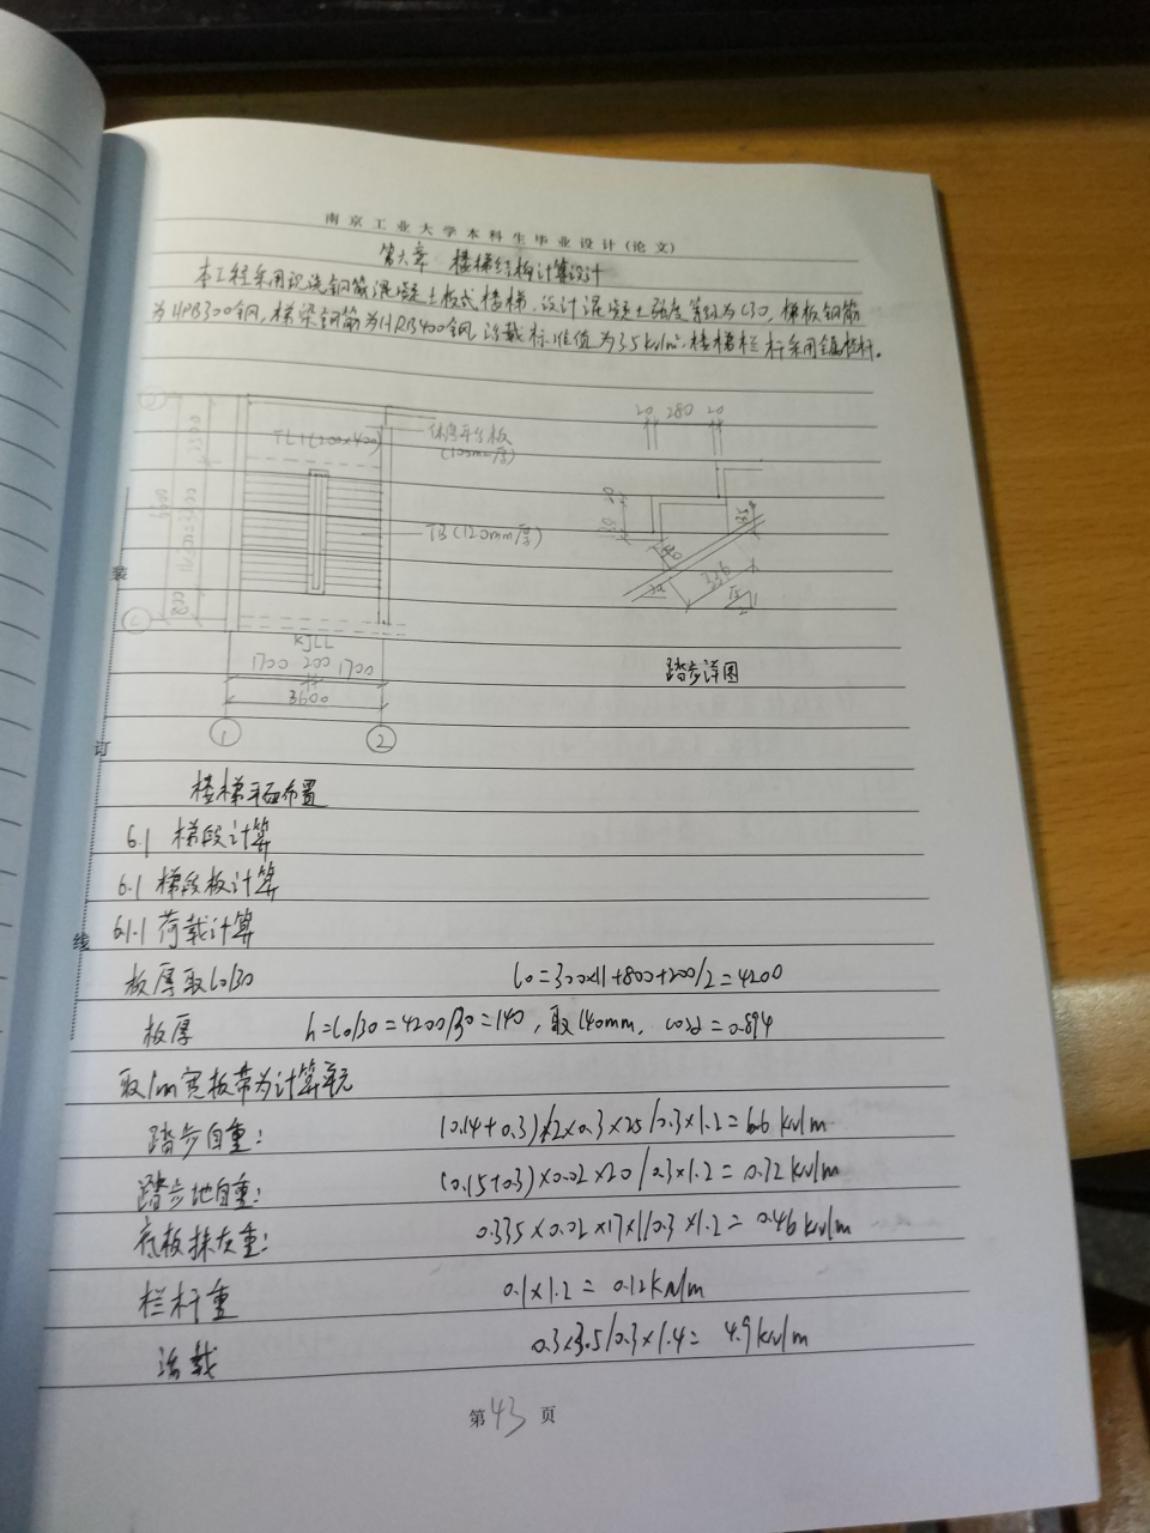 南京工业大学本科生毕业设计(论文)
第六章 楼梯结构计算设计
本工程采用现浇钢筋混凝土板式楼梯,设计混凝土强度等级为C30,梯板钢筋
为HPB300钢,梯梁钢筋为HRB400钢,活载标准值为3.5kN/m²,楼梯栏杆采用金属栏杆。
20 280 20
TL1(200x400)
休息平台板
(100mm厚)
TB(120mm厚)
140
336
KJLL
1700 200 1700
3600
踏步详图
1 2
楼梯平面布置
6.1 梯段计算
6.1 梯段板计算
6.1.1 荷载计算
板厚取l0/30 l0=300x11+800+200/2=4200
板厚 h=l0/30=4200/30=140,取140mm, cosα=0.894
取1m宽板带为计算单元
踏步自重: (0.14+0.3)/2x0.3x25/0.3x1.2=6.6kN/m
踏步地自重: (0.15+0.3)x0.02x20/0.3x1.2=0.72kN/m
底板抹灰重: 0.335x0.02x17x1/0.3x1.2=0.46kN/m
栏杆重 0.1x1.2=0.12kN/m
活载 0.3x3.5/0.3x1.4=4.9kN/m
第43页
装
订
线